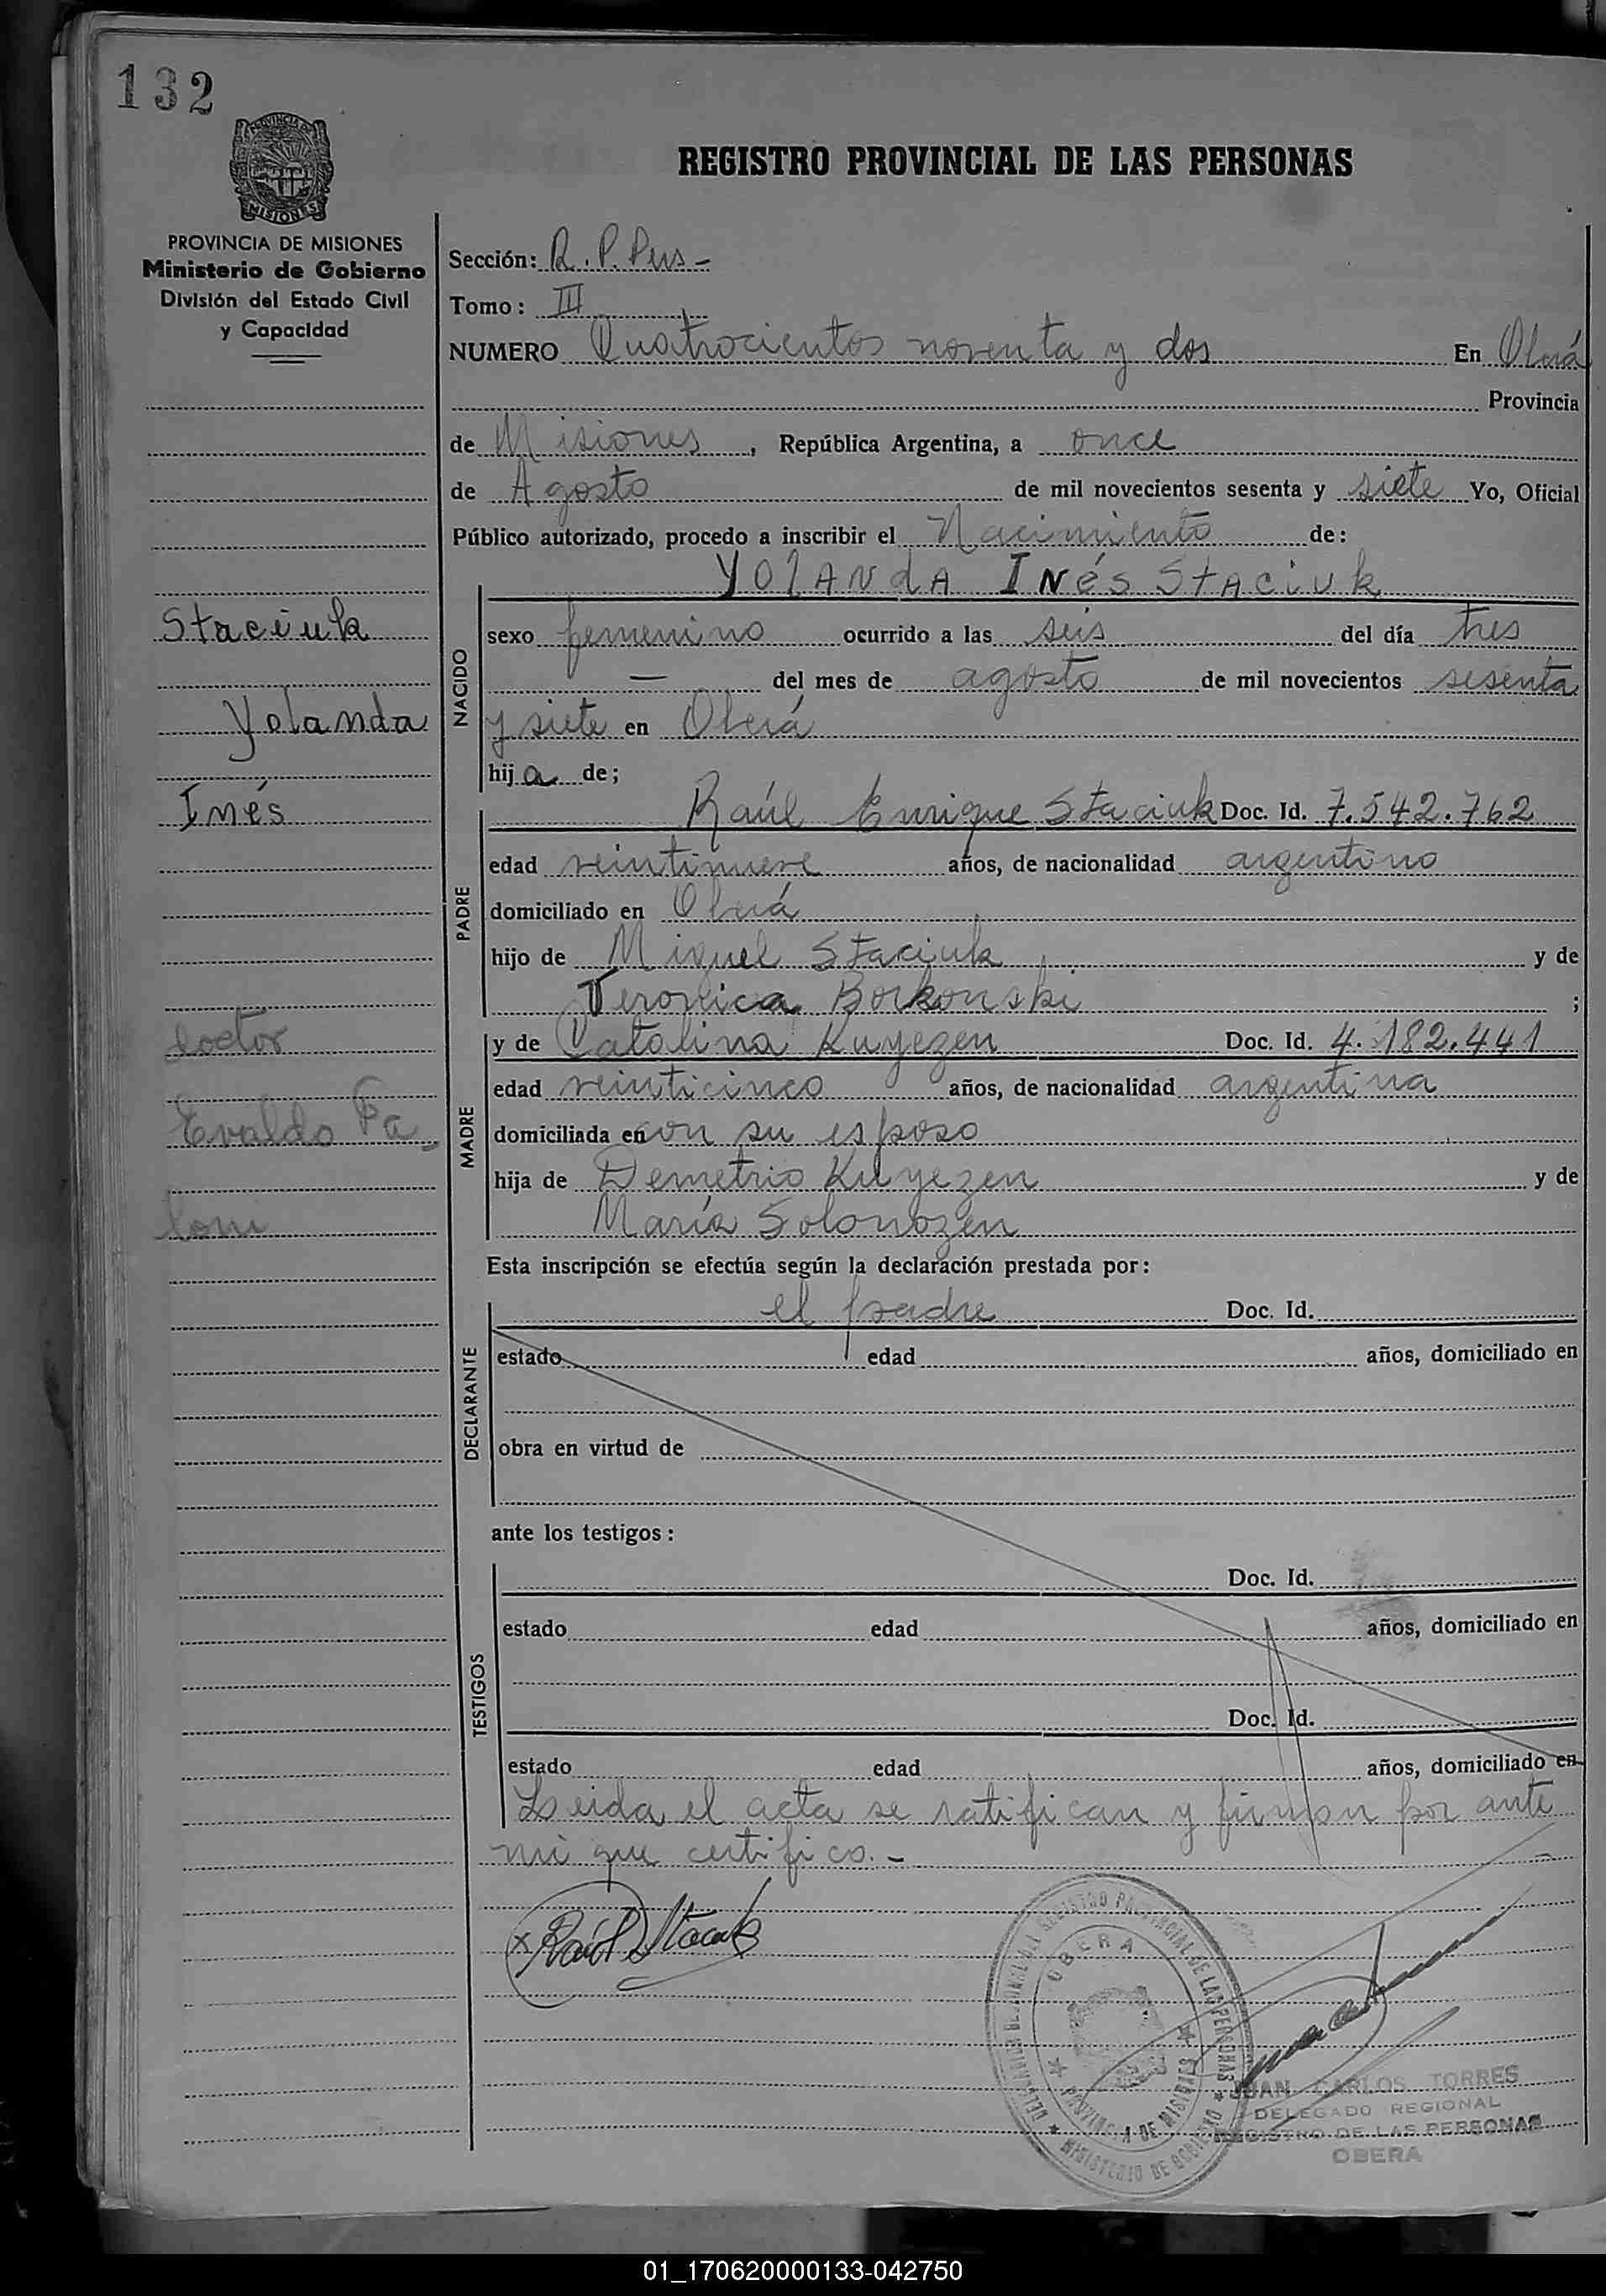 132
PROVINCIA DE MISIONES
Ministerio de Gobierno
División del Estado Civil
y Capacidad
REGISTRO PROVINCIAL DE LAS PERSONAS
Sección: R. P. Pers -
Tomo: III
NUMERO Cuatrocientos noventa y dos En Oberá
Provincia
de Misiones, República Argentina, a once
de Agosto de mil novecientos sesenta y siete Yo, Oficial
Público autorizado, procedo a inscribir el Nacimiento de:
YOLANdA INés StACiUk
Staciuk
Yolanda
Inés
NACIDO
sexo femenino ocurrido a las seis del día tres
— del mes de agosto de mil novecientos sesenta
y siete en Oberá
hija de;
PADRE
Raúl Enrique Staciuk Doc. Id. 7.542.762
edad veintinueve años, de nacionalidad argentino
domiciliado en Oberá
hijo de Miguel Staciuk y de
Veronica Borkonski ;
doctor
Evaldo Pa
lom
MADRE
y de Catalina Kuyezen Doc. Id. 4.182.441
edad veinticinco años, de nacionalidad argentina
domiciliada en con su esposo
hija de Demetrio Kuyezen y de
María Solonozen
Esta inscripción se efectúa según la declaración prestada por:
DECLARANTE
el padre Doc. Id.
estado edad años, domiciliado en
obra en virtud de
ante los testigos:
TESTIGOS
Doc. Id.
estado edad años, domiciliado en
Doc. Id.
estado edad años, domiciliado en
Leida el acta se ratifican y firman por ante
mi que certifico. -
x Raúl Staciuk
DELEGACION REGIONAL DEL REGISTRO PROVINCIAL DE LAS PERSONAS
OBERA
PROVINCIA DE MISIONES
MINISTERIO DE GOBIERNO
JUAN CARLOS TORRES
DELEGADO REGIONAL
REGISTRO DE LAS PERSONAS
OBERA
01_170620000133-042750